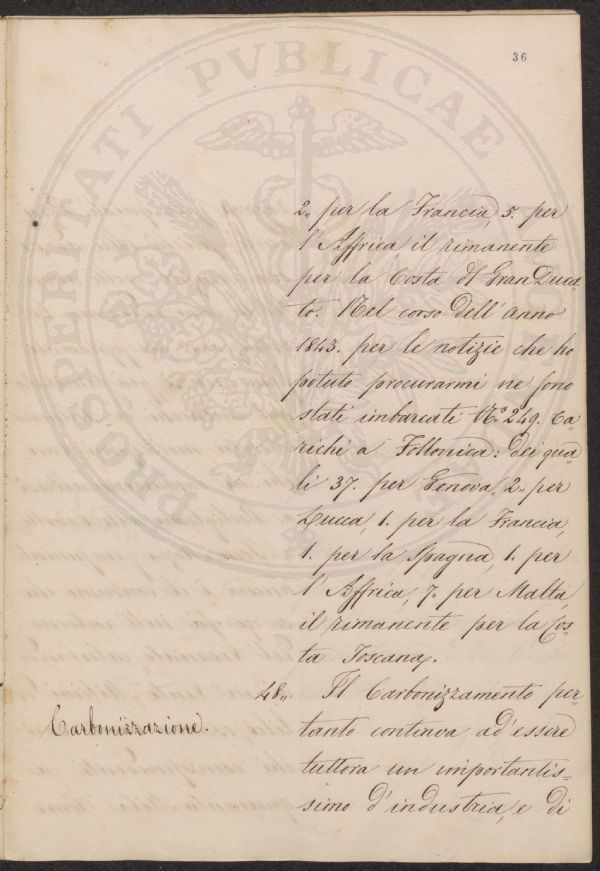 36
PROSPERITATI PVBLICAE
2,, per la Francia, 5. per
l'Affrica, il rimanente
per la Costa del GranDuca=
to. Nel corso dell'anno
1843. per le notizie che ho
potuto procurarmi ne sono
stati imbarcati N.º 249. Ca=
richi a Follonica: dei qua=
li 37. per Genova, 2,, per
Lucca, 1. per la Francia,
1. per la Spagna, 1. per
l'Affrica, 7,, per Malta,
il rimanente per la Cos=
ta Toscana.
48,, Il Carbonizzamento per=
Carbonizzazione.
tanto continva ad'essere
tuttora un importantis=
simo d'industria, e di